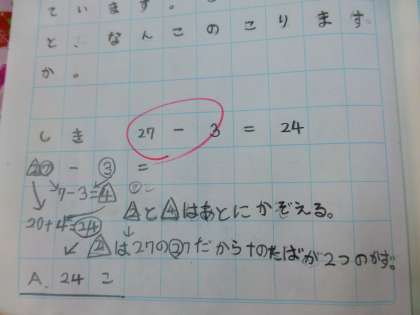 ています。
と、なんこのこります
か。
しき 27 - 3 = 24
27 - ③ =
7-3=4
20+4=24
2と4はあとにかぞえる。
2は27の②7だから十のたばが2つのかず。
A. 24こ